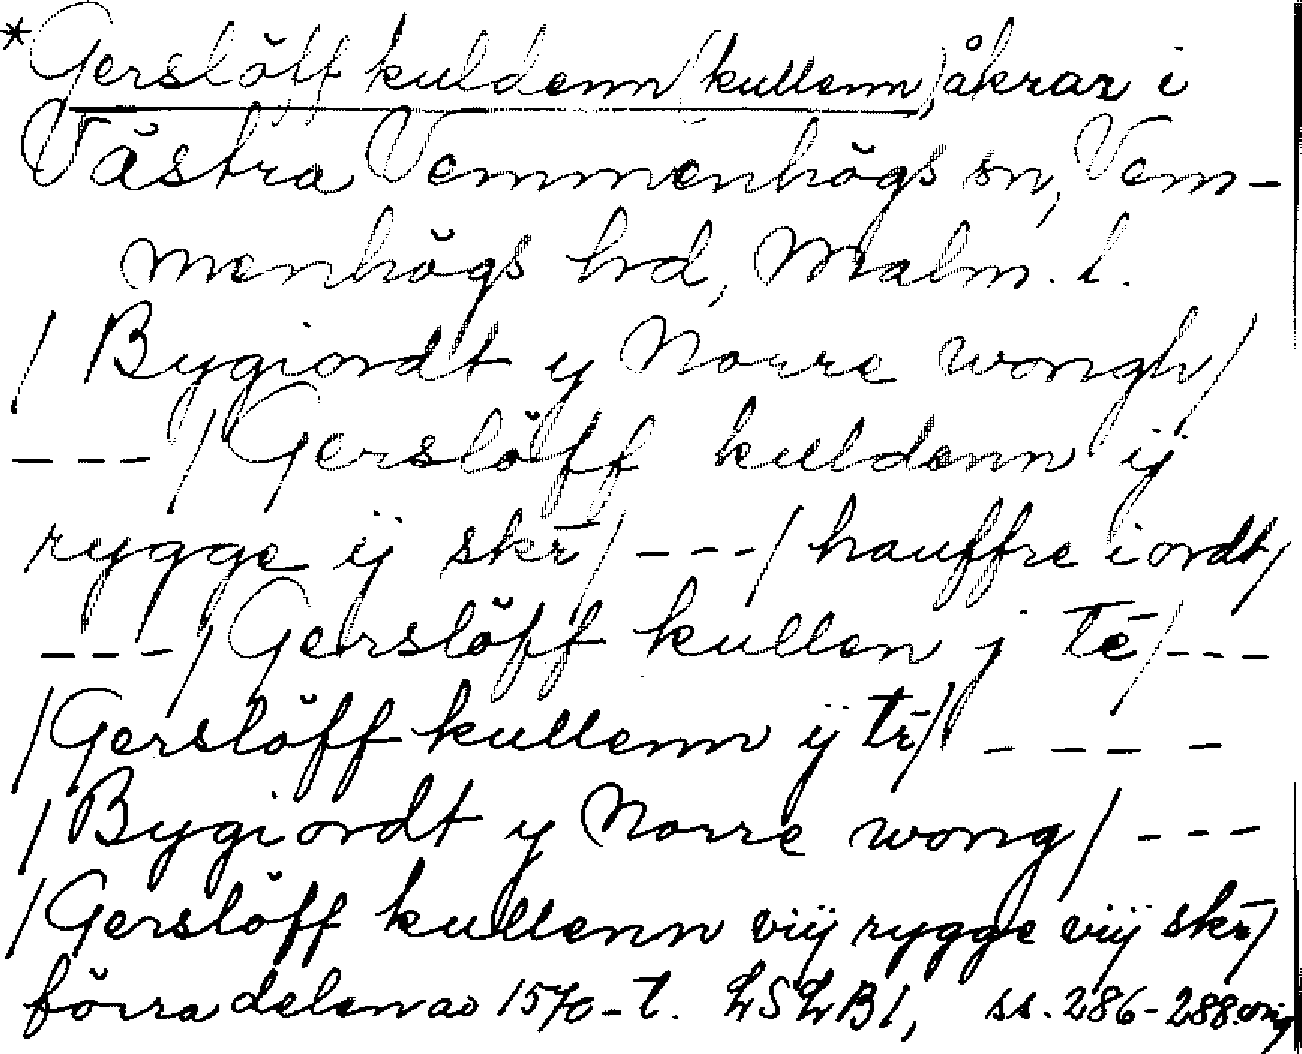 *Gerslöff kuldenn (kullenn), åkrar i
Västra Vemmenhögs sn, Vem-
menhögs hrd, Malm. l.
/ Bygiordt y Norre wongh /
--- / Gerslöff kuldenn ij
rygge ij skr̄ / --- / hauffre iordt /
--- / Gersløff kullen j tē / ---
/ Gerslöff kullenn ij tr̄ / ----
/ Bygiordt y Norre wong / ---
/ Gerslöff kullenn viij rygge viij skr̄ /
förra delen av 1570-t. LSLB1, ss. 286-288. orig